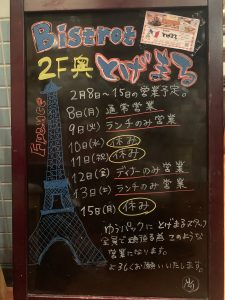 Bistrot
2F奥 とげまる
France
2月8日〜15日の営業予定。
8日(月) 通常営業
9日(火) ランチのみ営業
10日(水) 休み
11日(祝) 休み
12日(金) ディナーのみ営業
13日(土) ランチのみ営業
15日(月) 休み
ゆうパックに とげまるスタッフ
全員で 為 このような
営業になります。
よろしくお願いいたします。